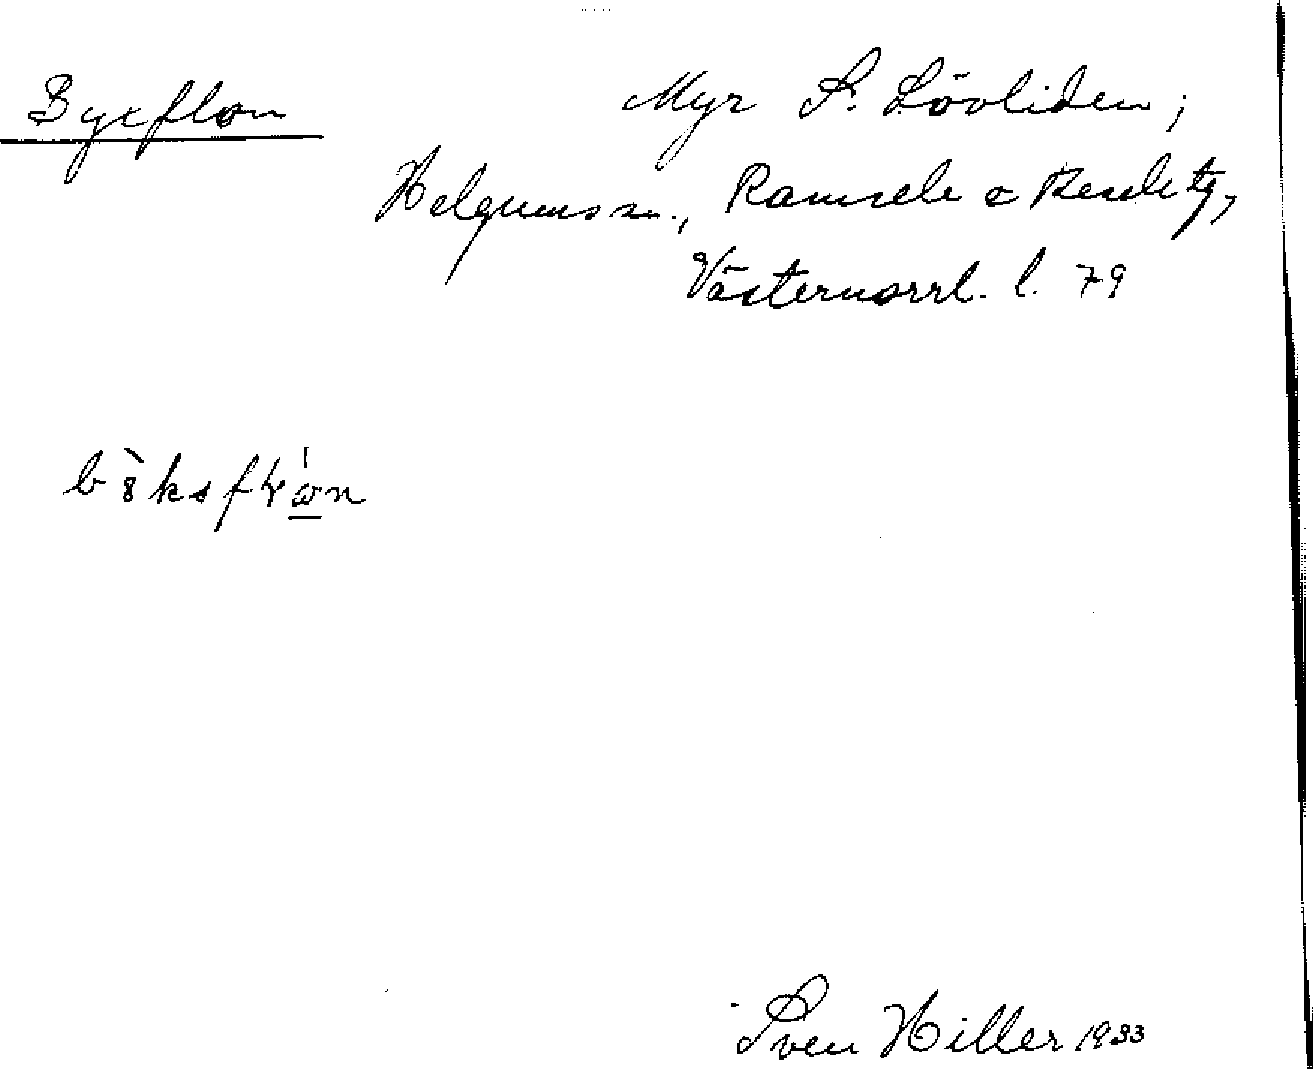 Byxflon
Myr S. Lövliden;
Helgums sn., Ramsele o Resele tg,
Västernorrl. l. 79
Sven Hiller 1933